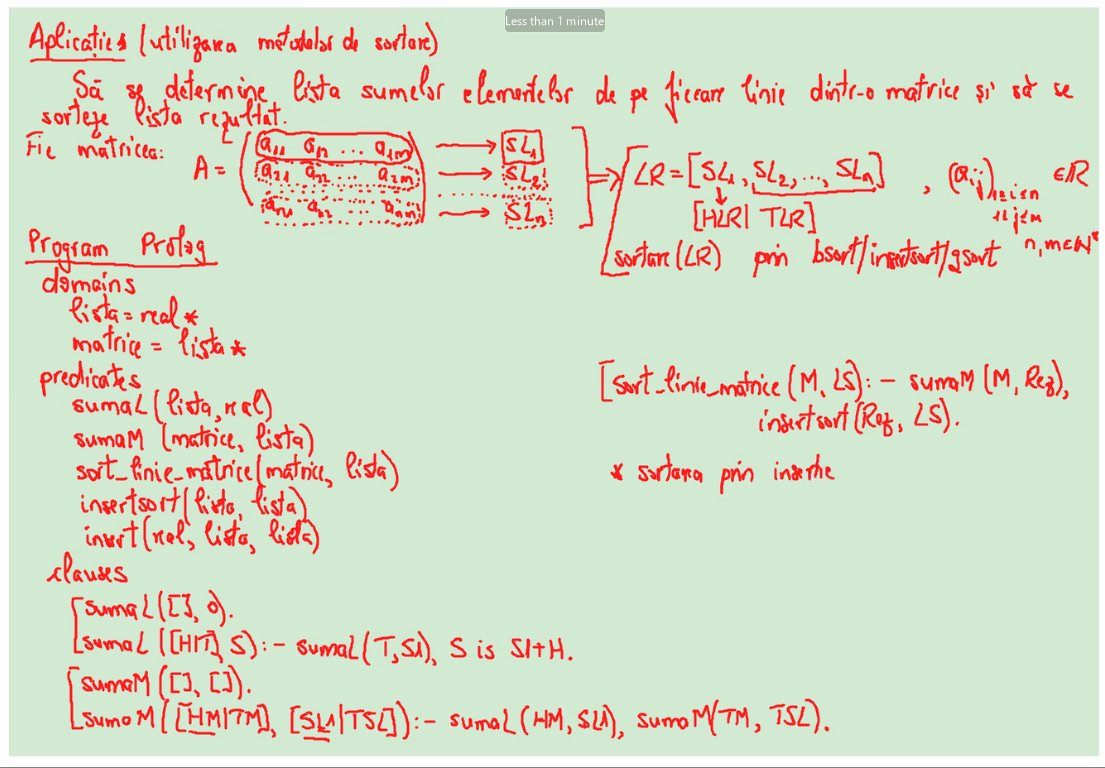 Less than 1 minute
Aplicație (utilizarea metodelor de sortare)
Să se determine lista sumelor elementelor de pe fiecare linie dintr-o matrice și să se
sorteze lista rezultat.
Fie matricea:
A = ( a11 a12 ... a1m → SL1
a21 a22 ... a2m → SL2
an1 an2 ... anm ) → SLn
⇒ LR = [SL1, SL2, ..., SLn] , (aij) 1≤i≤n 1≤j≤m ∈ R
[HLR| TLR]
n, m ∈ N*
sortare(LR) prin bsort/insertsort/qsort
Program Prolog
domains
lista = real *
matrice = lista *
predicates
sumaL(lista, real)
sumaM (matrice, lista)
sort_linie_matrice(matrice, lista)
insertsort(lista, lista)
insert(real, lista, lista)
clauses
sumaL([], 0).
sumaL([H|T], S):- sumaL(T, S1), S is S1+H.
sumaM([], []).
sumaM([HM|TM], [SL1|TSL]):- sumaL(HM, SL1), sumaM(TM, TSL).
sort_linie_matrice(M, LS):- sumaM(M, Rez),
insertsort(Rez, LS).
* sortarea prin insertie